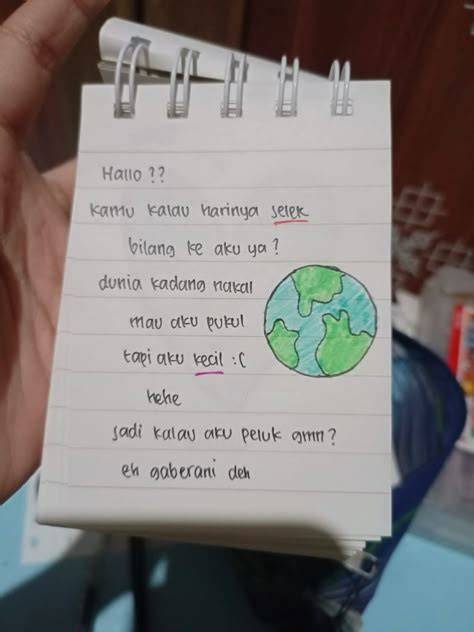 Hallo ??
kamu kalau harinya selek
bilang ke aku ya ?
dunia kadang nakal
mau aku pukul
tapi aku kecil :(
hehe
jadi kalau aku peluk gmn ?
eh gaberani deh